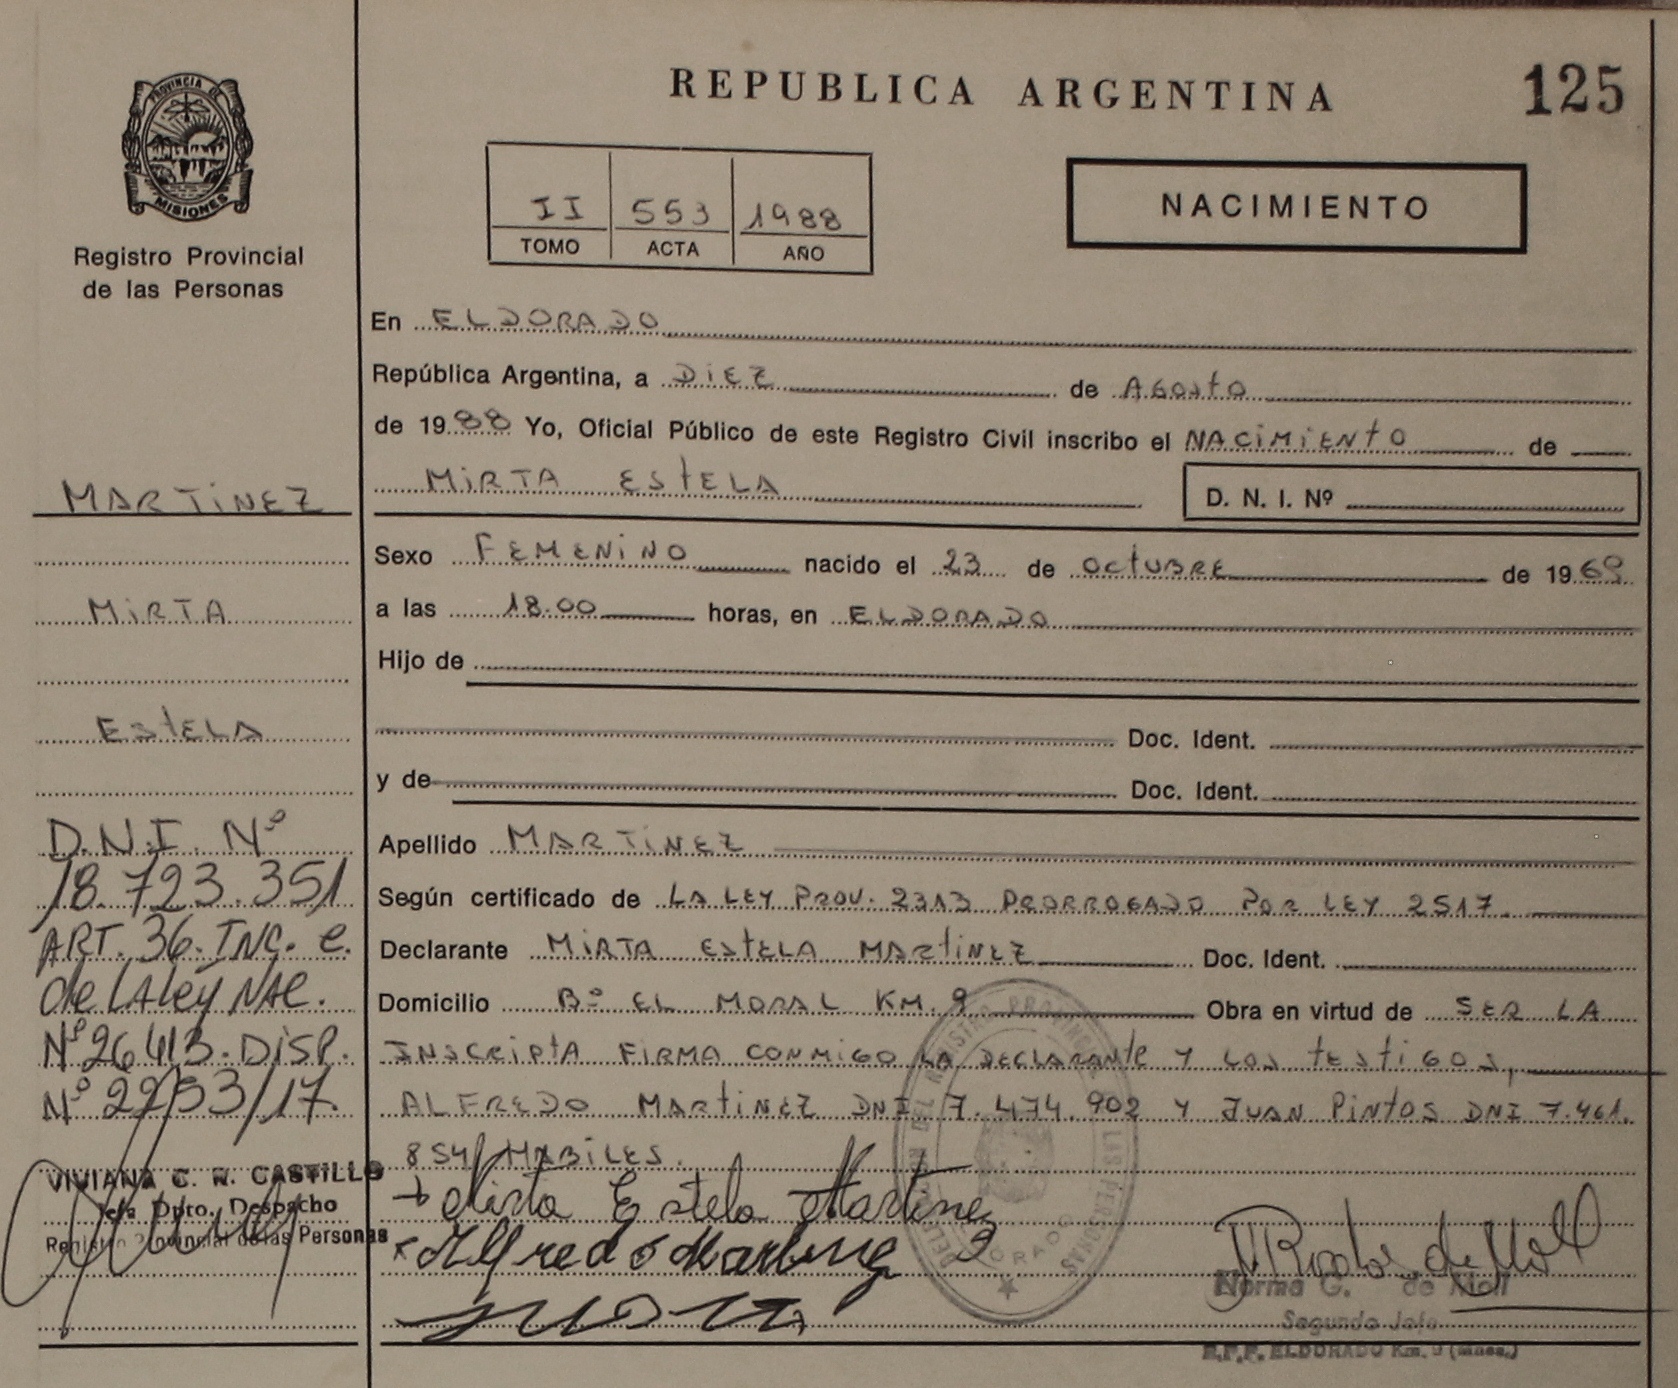 REPUBLICA ARGENTINA
125
PROVINCIA DE
MISIONES
Registro Provincial
de las Personas
II 553 1988
TOMO ACTA AÑO
NACIMIENTO
En ELDORADO
República Argentina, a DIEZ de AGOSTO
de 1988 Yo, Oficial Público de este Registro Civil inscribo el NACIMIENTO de
MIRTA ESTELA D. N. I. Nº
Sexo FEMENINO nacido el 23 de OCTUBRE de 1969
a las 18.00 horas, en ELDORADO
Hijo de
Doc. Ident.
y de Doc. Ident.
Apellido MARTINEZ
Según certificado de LA LEY PROV. 2313 PRORROGADO POR LEY 2517.
Declarante MIRTA ESTELA MARTINEZ Doc. Ident.
Domicilio Bº EL MORAL KM. 9 Obra en virtud de SER LA
INSCRIPTA FIRMA CONMIGO LA DECLARANTE Y LOS TESTIGOS,
ALFREDO MARTINEZ DNI 7.474.902 Y JUAN PINTOS DNI 7.461.
854/ HABILES.
Mirta Estela Martinez
Alfredo Martinez
Norma G. de Moll
Segundo Jefe
ELDORADO Km. 9
MARTINEZ
MIRTA
ESTELA
D.N.I. Nº
18.723.351
ART. 36. INC. e.
de LA ley NAC.
Nº 26413. DISP.
Nº 2253/17.
VIVIANA C. R. CASTILLO
Jefa Dpto. Despacho
Registro Provincial de las Personas